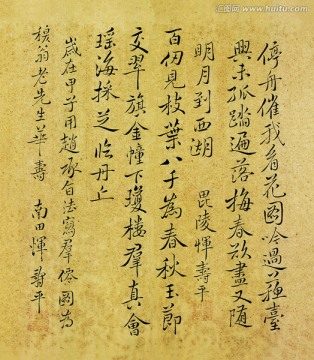 停舟催我看花圖吟過蘇臺
興未孤踏遍落梅春欲盡又隨
明月到西湖　毘陵惲壽平
百仞見枝葉八千為春秋玉節
交翠旗金幢下瓊樓羣真會
瑤海採芝臨丹丘
歲在甲子用趙承旨法寫羣僊圖為
樸翁老先生華壽　南田惲壽平
www.huitu.com